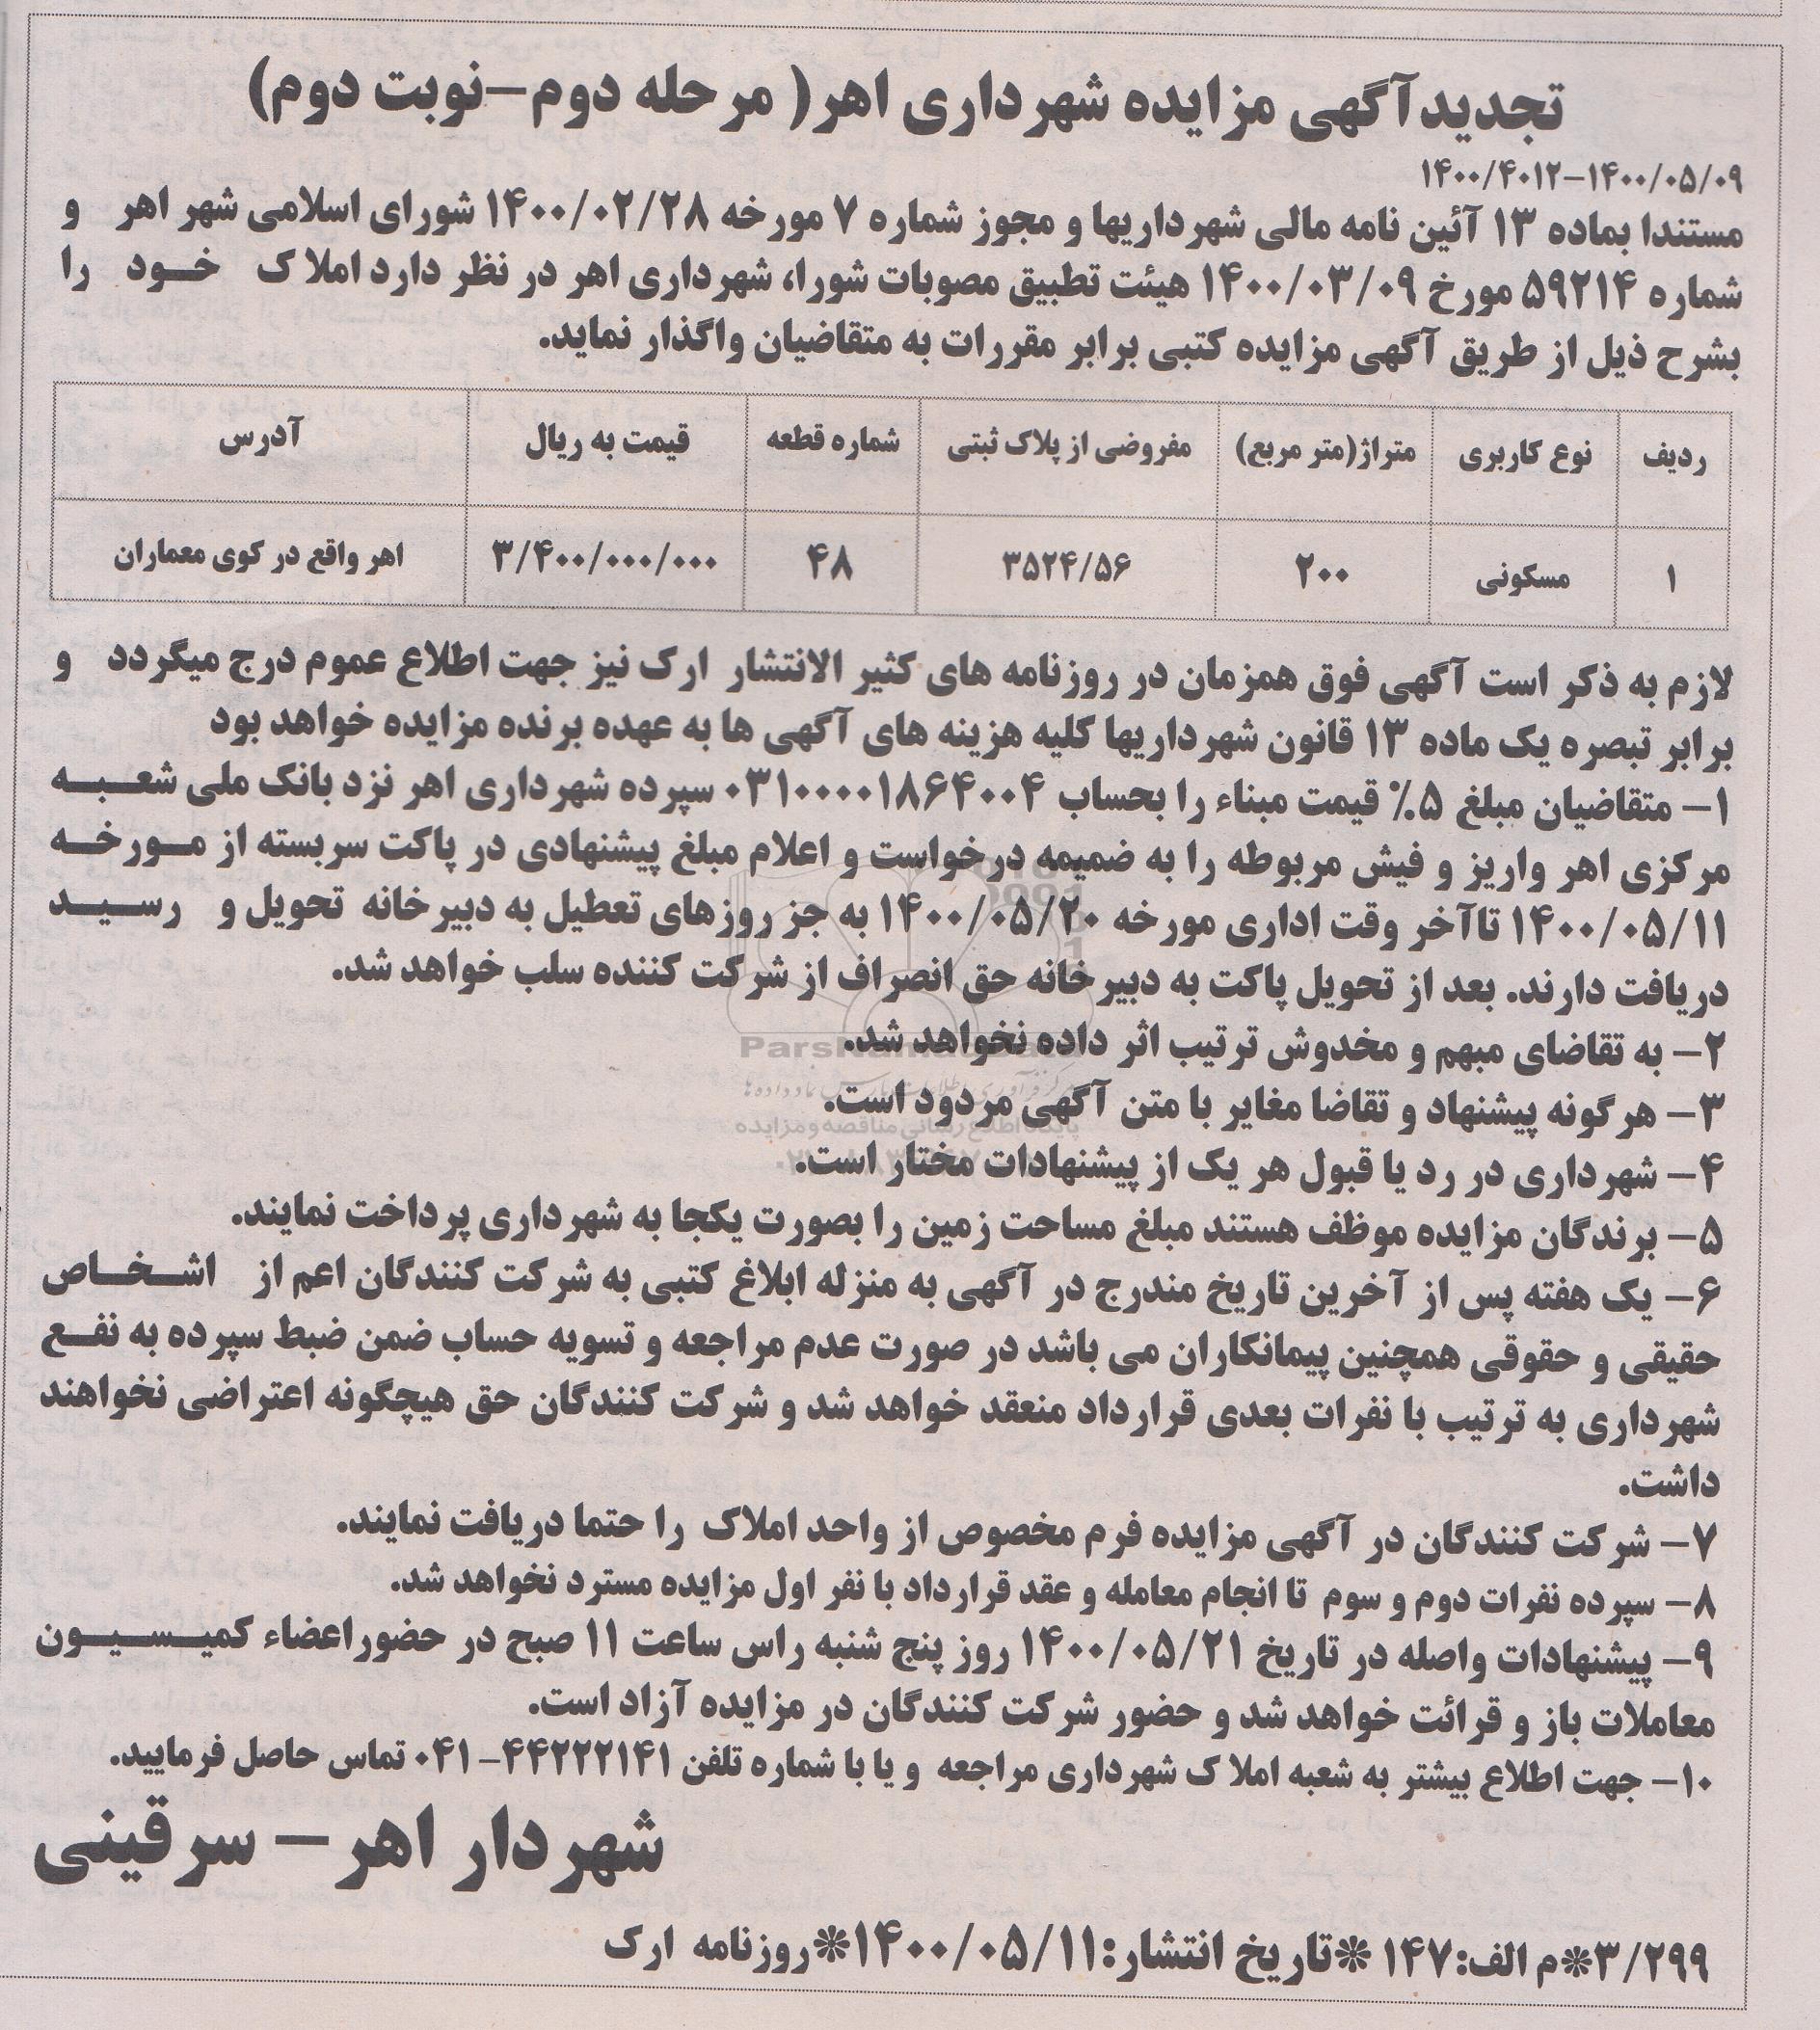 تجدیدآگهی مزایده شهرداری اهر( مرحله دوم–نوبت دوم)
۱۴۰۰/۴۰۱۲–۱۴۰۰/۰۵/۰۹
مستندا بماده ۱۳ آئین نامه مالی شهرداریها و مجوز شماره ۷ مورخه ۱۴۰۰/۰۲/۲۸ شورای اسلامی شهر اهر و
شماره ۵۹۲۱۴ مورخ ۱۴۰۰/۰۳/۰۹ هیئت تطبیق مصوبات شورا، شهرداری اهر در نظر دارد املاک خود را
بشرح ذیل از طریق آگهی مزایده کتبی برابر مقررات به متقاضیان واگذار نماید.
ردیف نوع کاربری متراژ(متر مربع) مفروضی از پلاک ثبتی شماره قطعه قیمت به ریال آدرس
۱ مسکونی ۲۰۰ ۳۵۲۴/۵۶ ۴۸ ۳/۴۰۰/۰۰۰/۰۰۰ اهر واقع در کوی معماران
لازم به ذکر است آگهی فوق همزمان در روزنامه های کثیر الانتشار ارک نیز جهت اطلاع عموم درج میگردد و
برابر تبصره یک ماده ۱۳ قانون شهرداریها کلیه هزینه های آگهی ها به عهده برنده مزایده خواهد بود
۱– متقاضیان مبلغ ۵٪ قیمت مبناء را بحساب ۰۳۱۰۰۰۰۱۸۶۴۰۰۴ سپرده شهرداری اهر نزد بانک ملی شعبه
مرکزی اهر واریز و فیش مربوطه را به ضمیمه درخواست و اعلام مبلغ پیشنهادی در پاکت سربسته از مورخه
۱۴۰۰/۰۵/۱۱ تاآخر وقت اداری مورخه ۱۴۰۰/۰۵/۲۰ به جز روزهای تعطیل به دبیرخانه تحویل و رسید
دریافت دارند. بعد از تحویل پاکت به دبیرخانه حق انصراف از شرکت کننده سلب خواهد شد.
۲– به تقاضای مبهم و مخدوش ترتیب اثر داده نخواهد شد.
۳– هرگونه پیشنهاد و تقاضا مغایر با متن آگهی مردود است.
۴– شهرداری در رد یا قبول هر یک از پیشنهادات مختار است.
۵– برندگان مزایده موظف هستند مبلغ مساحت زمین را بصورت یکجا به شهرداری پرداخت نمایند.
۶– یک هفته پس از آخرین تاریخ مندرج در آگهی به منزله ابلاغ کتبی به شرکت کنندگان اعم از اشخاص
حقیقی و حقوقی همچنین پیمانکاران می باشد در صورت عدم مراجعه و تسویه حساب ضمن ضبط سپرده به نفع
شهرداری به ترتیب با نفرات بعدی قرارداد منعقد خواهد شد و شرکت کنندگان حق هیچگونه اعتراضی نخواهند
داشت.
۷– شرکت کنندگان در آگهی مزایده فرم مخصوص از واحد املاک را حتما دریافت نمایند.
۸– سپرده نفرات دوم و سوم تا انجام معامله و عقد قرارداد با نفر اول مزایده مسترد نخواهد شد.
۹– پیشنهادات واصله در تاریخ ۱۴۰۰/۰۵/۲۱ روز پنج شنبه راس ساعت ۱۱ صبح در حضوراعضاء کمیسیون
معاملات باز و قرائت خواهد شد و حضور شرکت کنندگان در مزایده آزاد است.
۱۰– جهت اطلاع بیشتر به شعبه املاک شهرداری مراجعه و یا با شماره تلفن ۴۴۲۲۲۱۴۱–۰۴۱ تماس حاصل فرمایید.
شهردار اهر– سرقینی
۳/۲۹۹*م الف:۱۴۷ *تاریخ انتشار:۱۴۰۰/۰۵/۱۱*روزنامه ارک